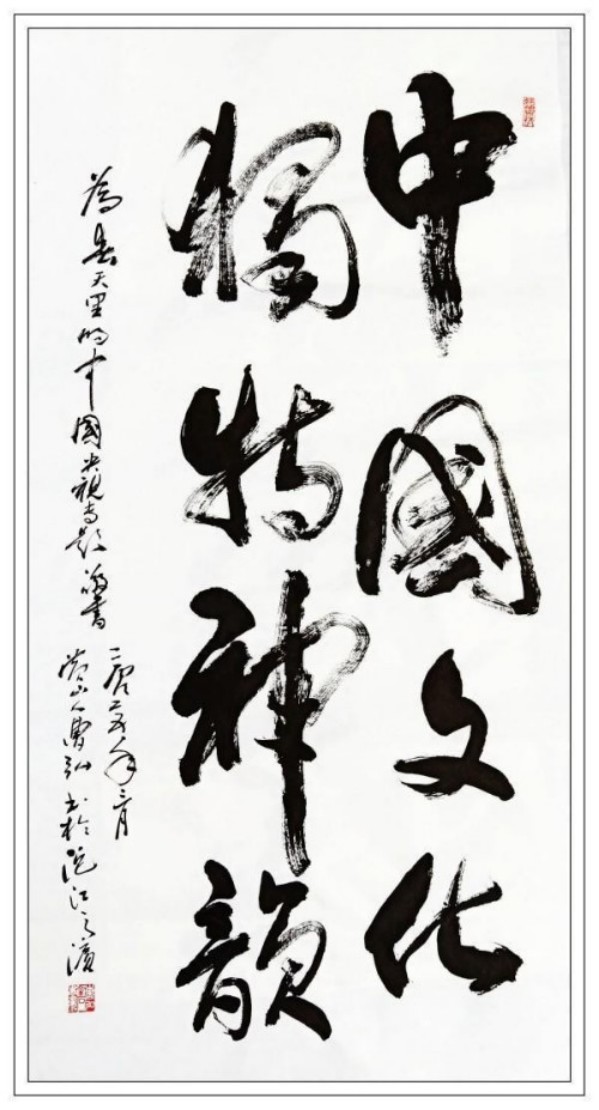 中國文化
獨特神韻
為春天里的中國央視专题 敬書
二〇二五年三月
營山人曹弘 書於沱江之濱